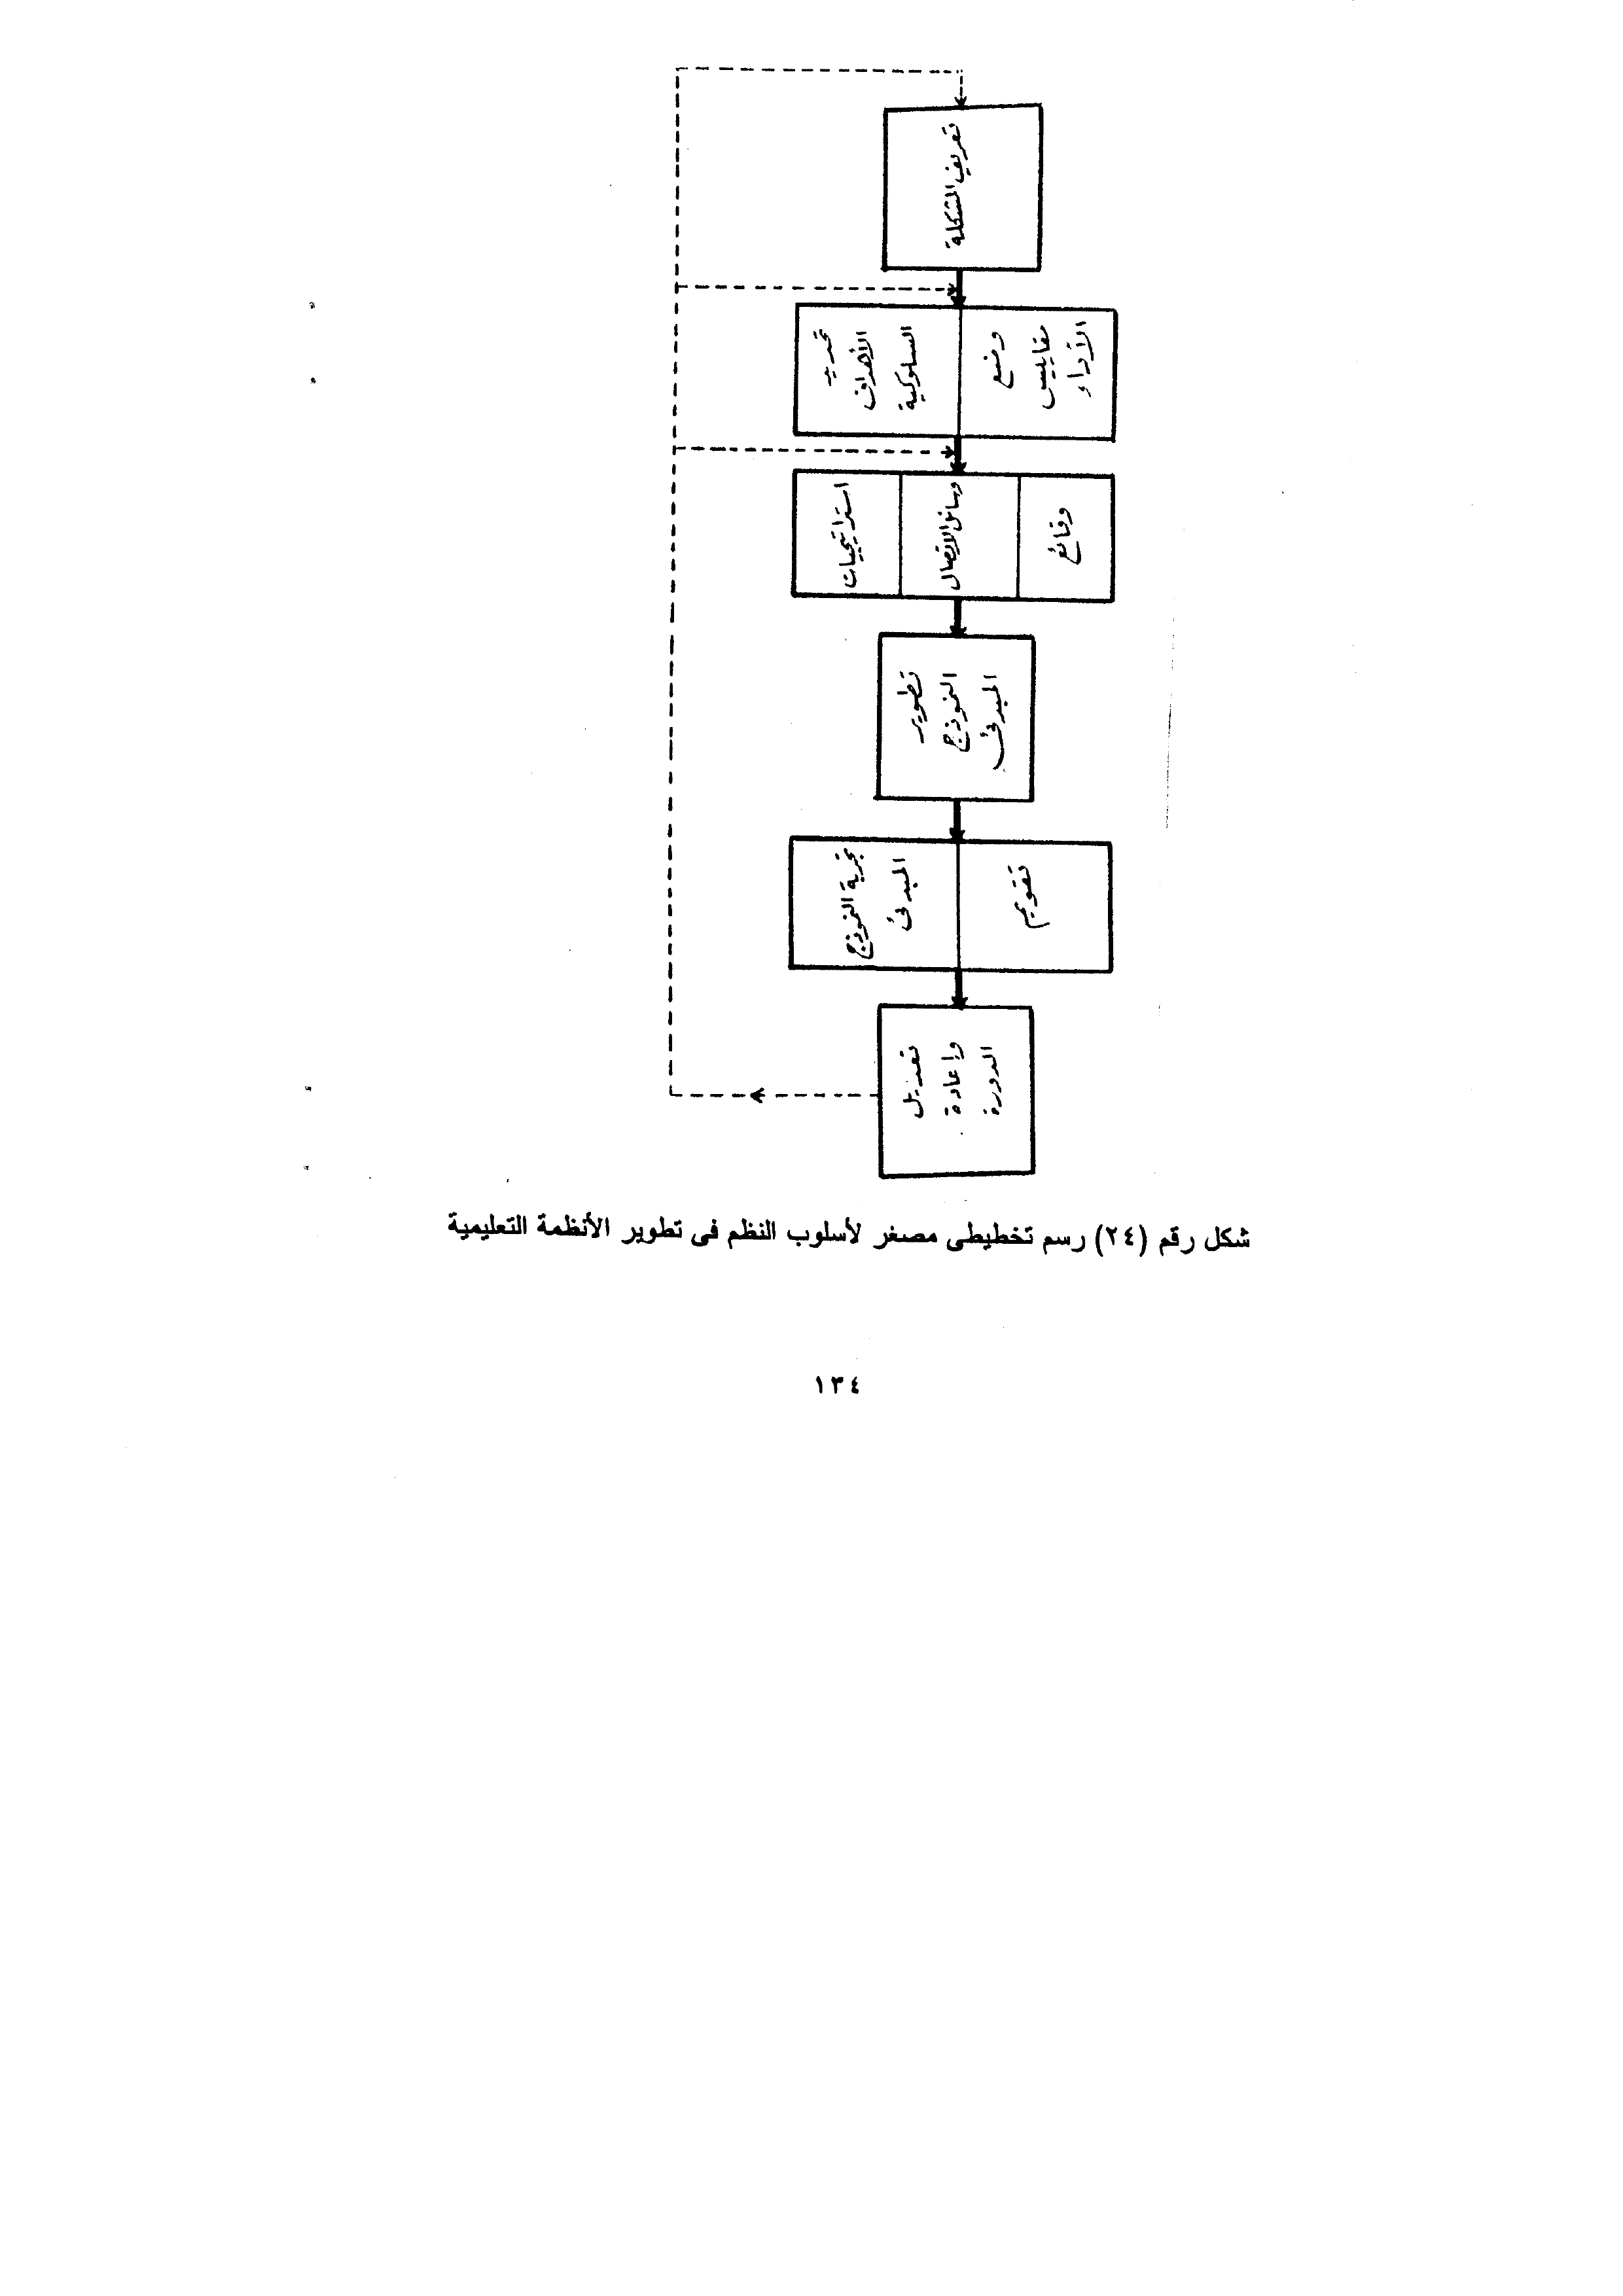 تعريف المشكلة
تحديد
الأهداف
السلوكية
وضع
مقاييس
الآداء
استراتيجيات
وسائل الاتصال
وقائع
تطوير
النموذج
المبدئى
تجربة النموذج
المبدئى
تقويم
تعديل
وإعادة
الدورة
شكل رقم (٢٤) رسم تخطيطى مصغر لأسلوب النظم فى تطوير الأنظمة التعليمية
١٣٤